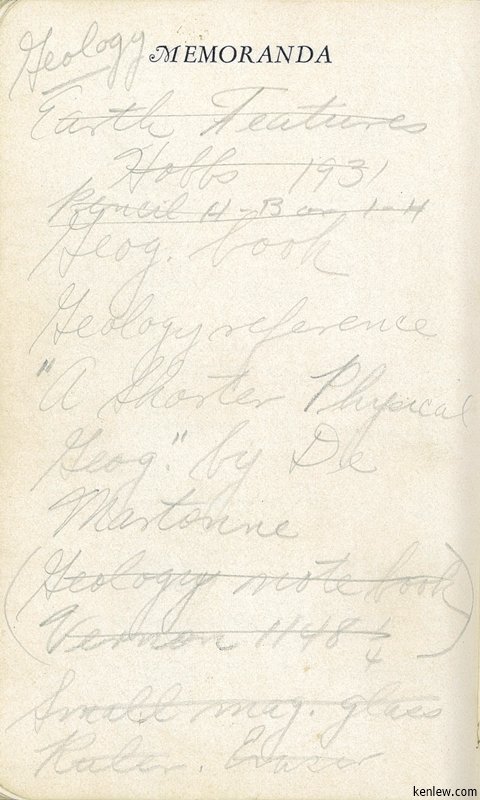 Geology
MEMORANDA
Earth Features
Hobbs 1931
Pencil H-B or 1-H
Geog. book
Geology reference
"A Shorter Physical
Geog." by De
Martonne
(Geology note book
Vernon 1148 1/4)
Small mag. glass
Ruler. Eraser
kenlew.com